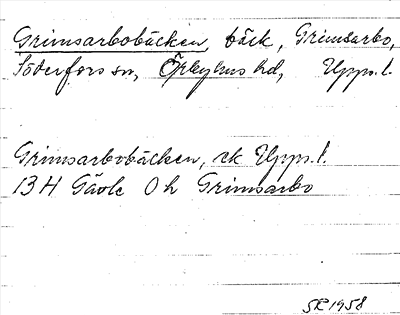 Grimsarbobäcken, bäck, Grimsarbo,
Söderfors sn, Örbyhus hd, Upps.l.
Grimsarbobäcken, ek Upps.l.
13H Gävle 0 h Grimsarbo
SR 1958